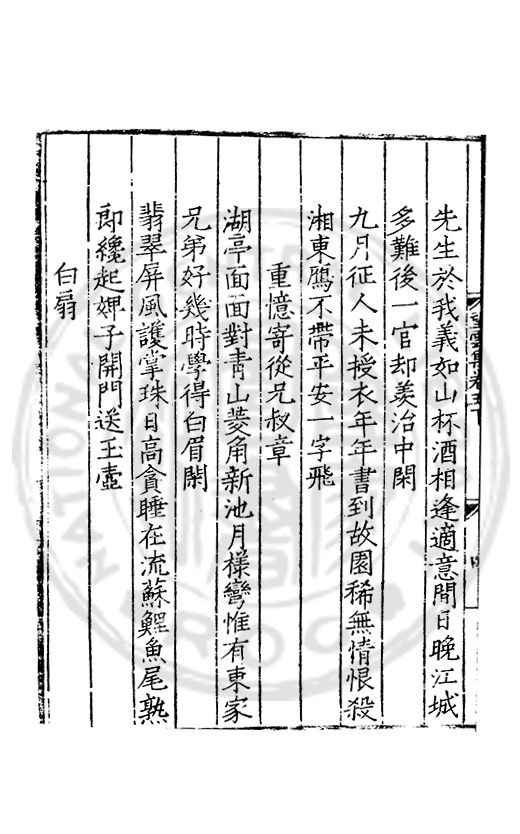 先生於我義如山杯酒相逢適意間日晚江城
多難後一官却羨治中閑
九月征人未授衣年年書到故園稀無情恨殺
湘東鴈不帶平安一字飛
重憶寄從兄叔章
湖亭面面對青山菱角新池月樣彎惟有東家
兄弟好幾時學得白眉閑
翡翠屏風護掌珠日高貪睡在流蘇鯉魚尾熟
郎纔起婢子開門送玉壺
白扇